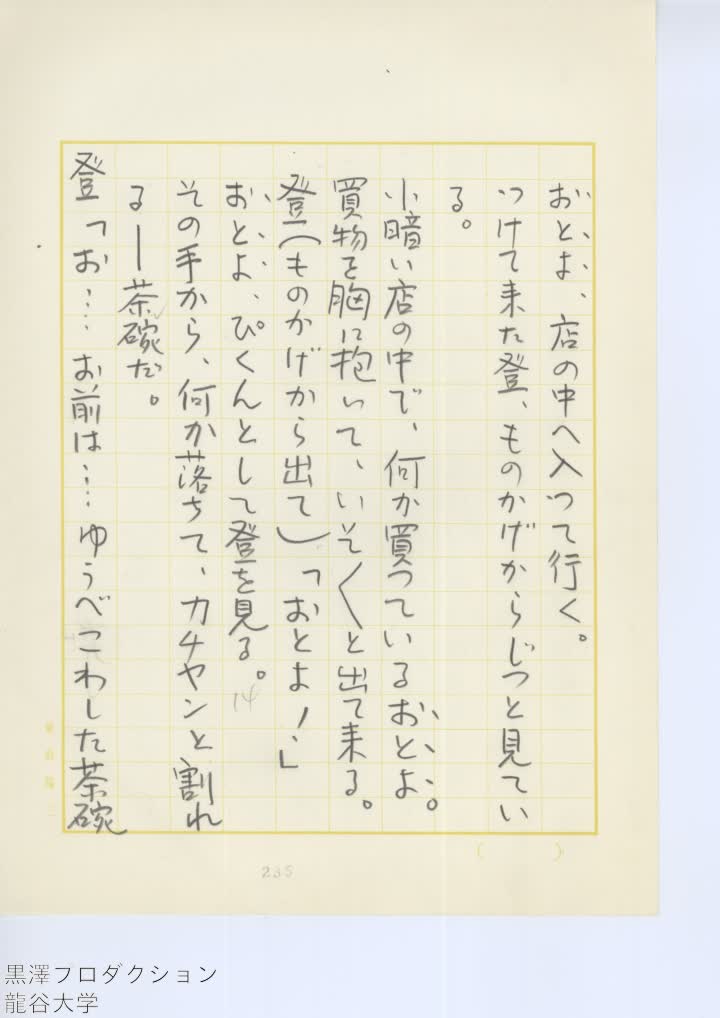 おとよ、店の中へ入つて行く。
つけて来た登、ものかげからじつと見てい
る。
小暗い店の中で、何か買つているおとよ。
買物を胸に抱いて、いそ〱と出て来る。
登(ものかげから出て)「おとよ!」
おとよ、ぴくんとして登を見る。
14
その手から、何か落ちて、カチヤンと割れ
る──茶碗だ。
登「お…… お前は…… ゆうべこわした茶碗
235
黒澤プロダクション
龍谷大学